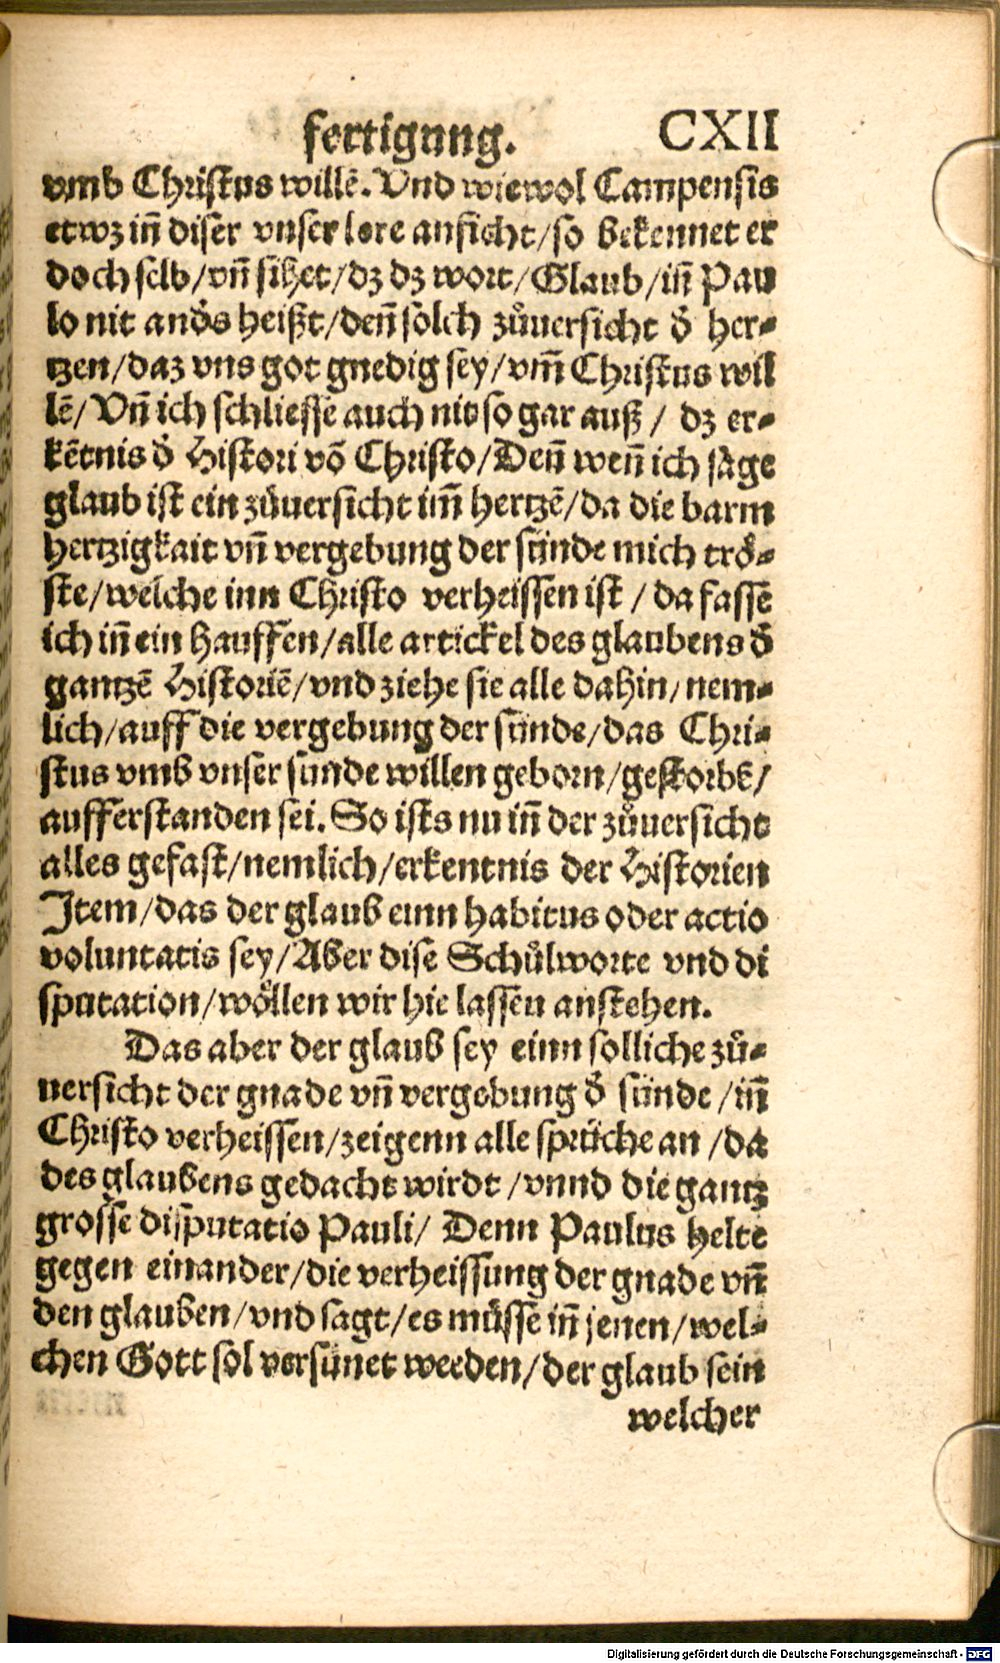 fertigung. CXII
vmb Christus willē. Vnd wiewol Campensis
etwz iñ diser vnser lere anficht/so bekennet er
doch selb/vñ sihet/dz dz wort/Glaub/iñ Pau
lo nit anđs heißt/deñ solch zůuersicht đ her⸗
tzen/daz vns got gnedig sey/vm̃ Christus wil
lē/Vñ ich schliesse auch nit so gar auß/ dz er⸗
kētnis đ Histori vō Christo/Deñ weñ ich sage
glaub ist ein zůuersicht im̃ hertzē/da die barm
hertzigkait vñ vergebung der sünde mich trö⸗
ste/welche inn Christo verheissen ist/da fasse
ich iñ ein hauffen/alle artickel des glaubens đ
gantzē Historiē/vnd ziehe sie alle dahin/nem⸗
lich/auff die vergebung der sünde/das Chri⸗
stus vmb vnser sünde willen geborn/gestorbē/
aufferstanden sei. So ists nu iñ der zůuersicht
alles gefast/nemlich/erkentnis der Historien
Item/das der glaub einn habitus oder actio
voluntatis sey/Aber dise Schůlworte vnd di
sputation/wöllen wir hie lassen anstehen.
Das aber der glaub sey einn solliche zů⸗
uersicht der gnade vñ vergebung đ sünde/iñ
Christo verheissen/zeigenn alle sprüche an/da
des glaubens gedacht wirdt/vnnd die gantz
grosse disputatio Pauli/ Denn Paulus helte
gegen einander/die verheissung der gnade vñ
den glauben/vnd sagt/es müsse iñ jenen/wel⸗
chen Gott sol versünet werden/der glaub sein
welcher
Digitalisierung gefördert durch die Deutsche Forschungsgemeinschaft - DFG